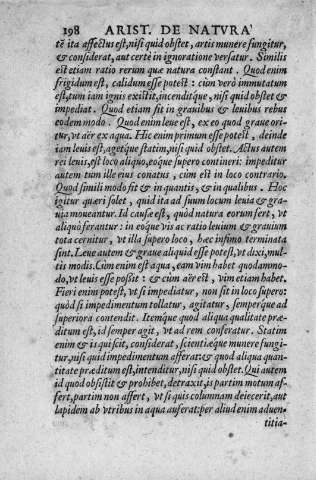 198 ARIST. DE NATVRA
tē ita affectus est, nisi quid obstet, artis munere fungitur,
& considerat, aut certè in ignoratione versatur. Similis
est etiam ratio rerum quæ natura constant. Quod enim
frigidum est, calidum esse potest: cùm verò immutatum
est, tum iam ignis existit, incenditque, nisi quid obstet &
impediat. Quod etiam fit in grauibus & leuibus rebus
eodem modo. Quod enim leue est, ex eo quod graue ori-
tur, vt aër ex aqua. Hic enim primum esse potest, deinde
iam leuis est, agetque statim, nisi quid obstet. Actus autem
rei leuis, est loco aliquo, eoque supero contineri: impeditur
autem tum ille eius conatus, cùm est in loco contrario.
Quod simili modo fit & in quantis, & in qualibus. Hoc
igitur quæri solet, quid ita ad suum locum leuia & gra-
uia moueantur. Id causæ est, quòd natura eorum fert, vt
aliquò ferantur: in eoque vis ac ratio leuium & grauium
tota cernitur, vt illa supero loco, hæc infimo terminata
sint. Leue autem & graue aliquid esse potest, vt dixi, mul-
tis modis. Cùm enim est aqua, eam vim habet quodammo-
do, vt leuis esse possit: & cùm aër est, vim etiam habet.
Fieri enim potest, vt si impediatur, non sit in loco supero:
quòd si impedimentum tollatur, agitatur, semperque ad
superiora contendit. Itemque quod aliqua qualitate præ-
ditum est, id semper agit, vt ad rem conferatur. Statim
enim & is qui scit, considerat, scientiæque munere fungi-
tur, nisi quid impedimentum afferat: & quod aliqua quan-
titate præditum est, intenditur, nisi quid obstet. Qui autem
id quod obsistit & prohibet, detraxit, is partim motum af-
fert, partim non affert, vt si quis columnam deiecerit, aut
lapidem ab vtribus in aqua auferat: per aliud enim aduen-
titia-